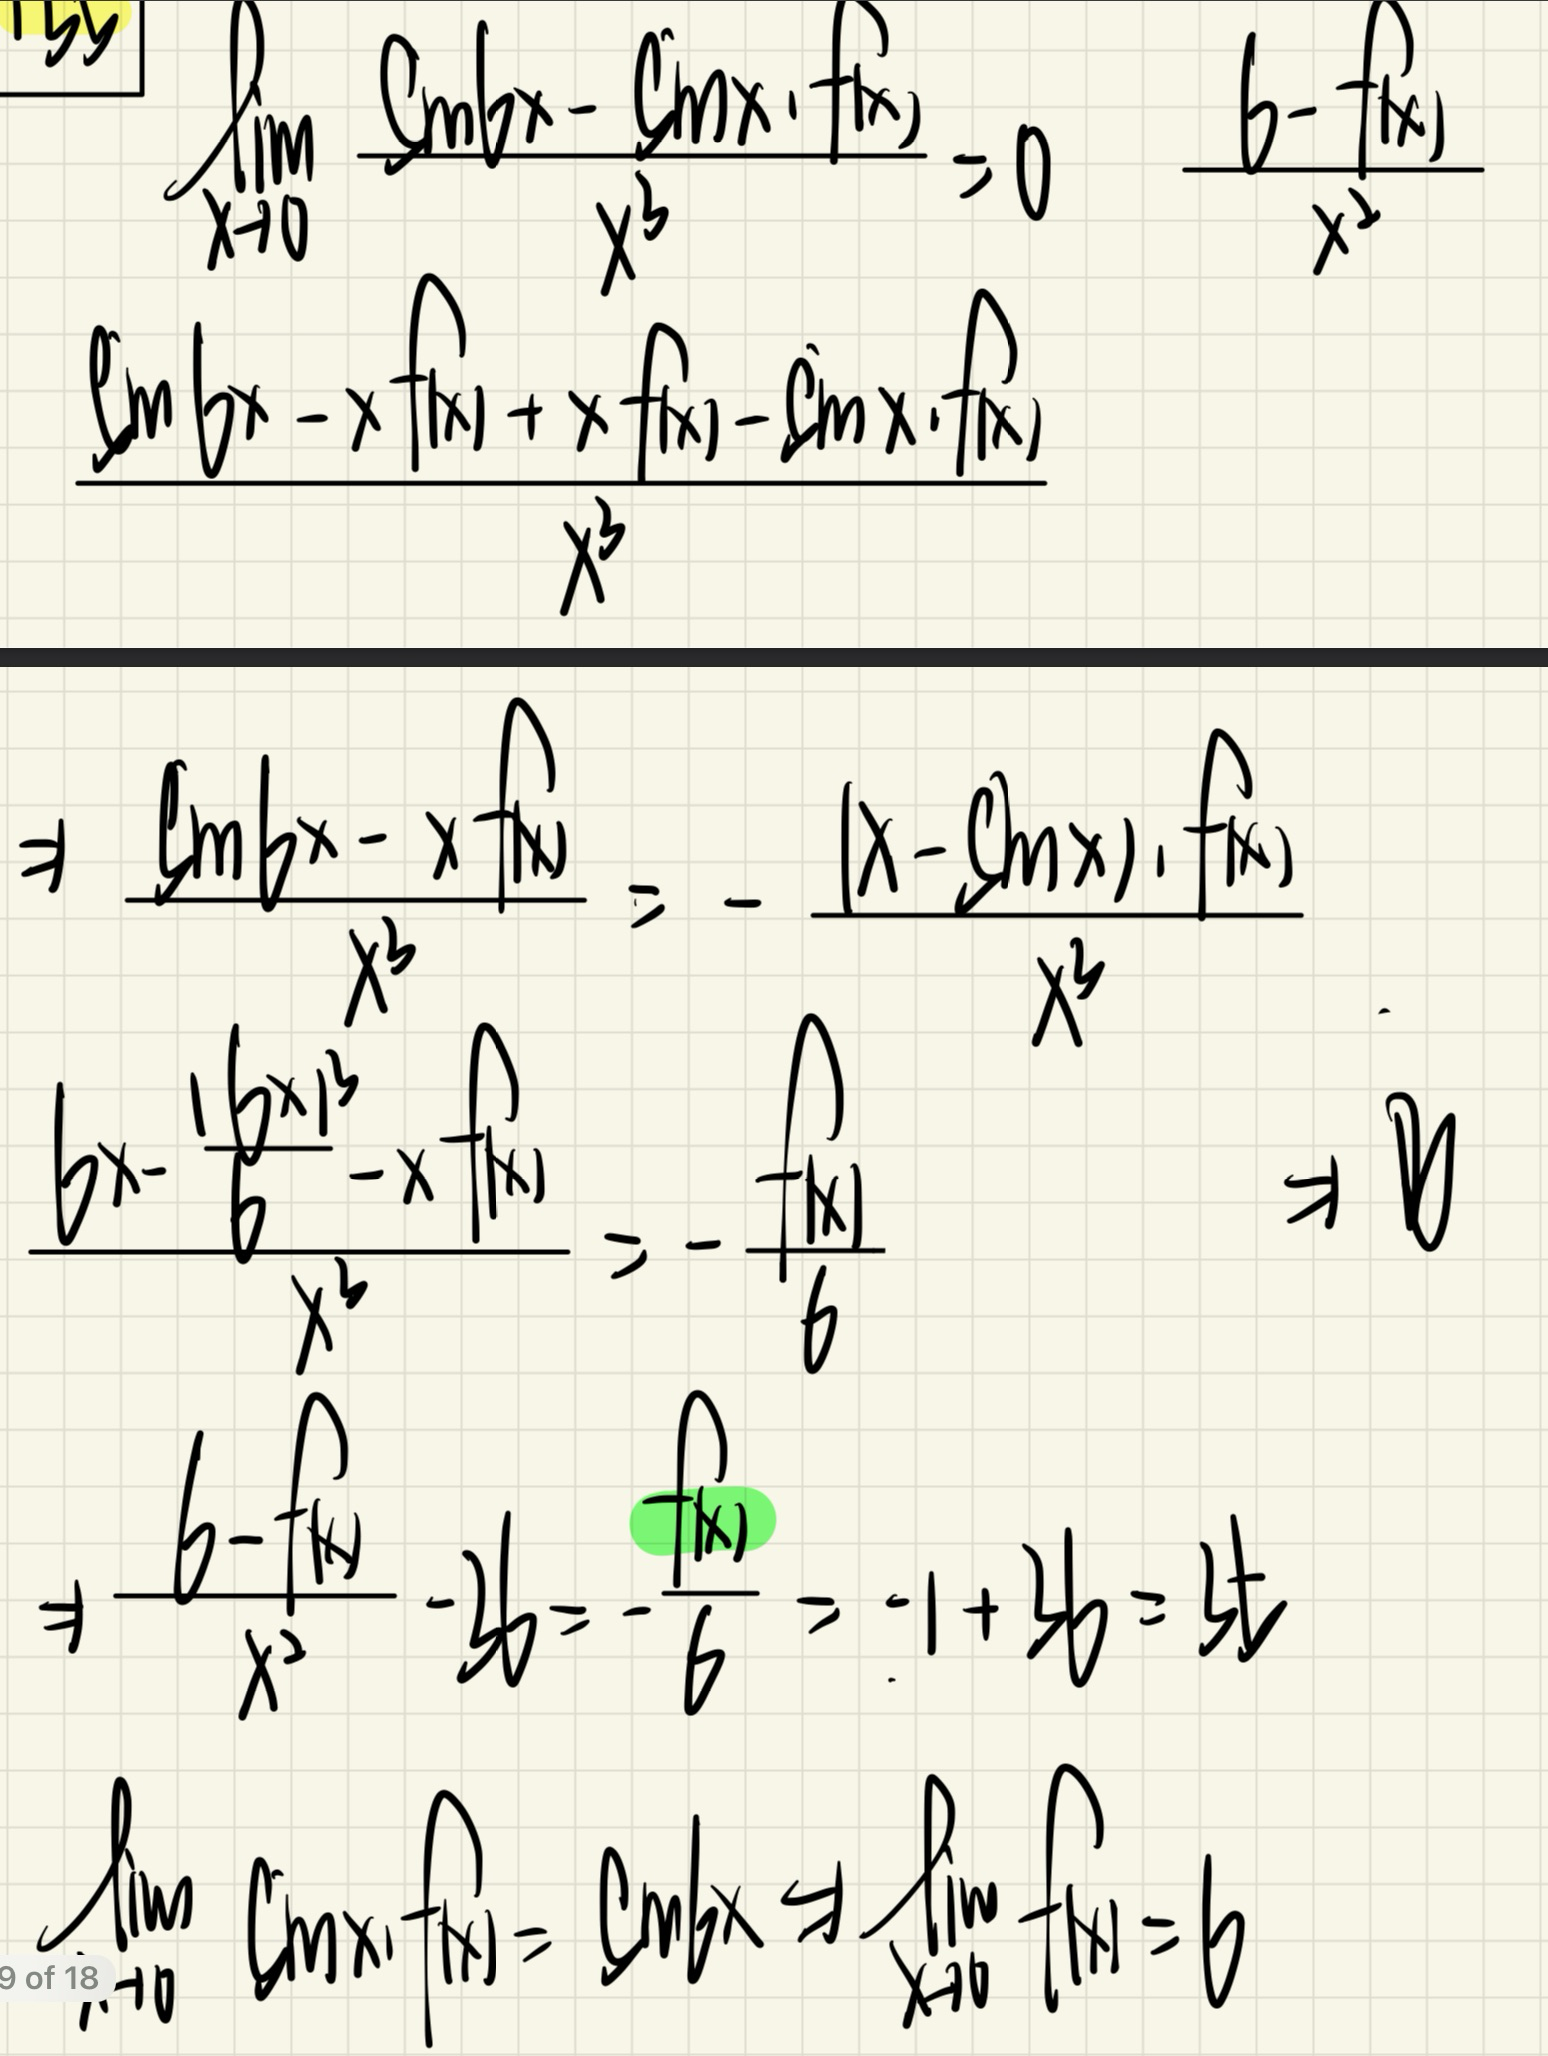 lim x→0 (sin6x - sinx·f(x))/x³ = 0 (6 - f(x))/x²
(sin6x - xf(x) + xf(x) - sinx·f(x))/x³
⇒ (sin6x - xf(x))/x³ = - (x - sinx)·f(x)/x³
(6x - (6x)³/6 - xf(x))/x³ = - f(x)/6
⇒ (6 - f(x))/x² - 36 = - f(x)/6 = -1 + 36 = 35
lim x→0 sinx·f(x) = sin6x ⇒ lim x→0 f(x) = 6
9 of 18